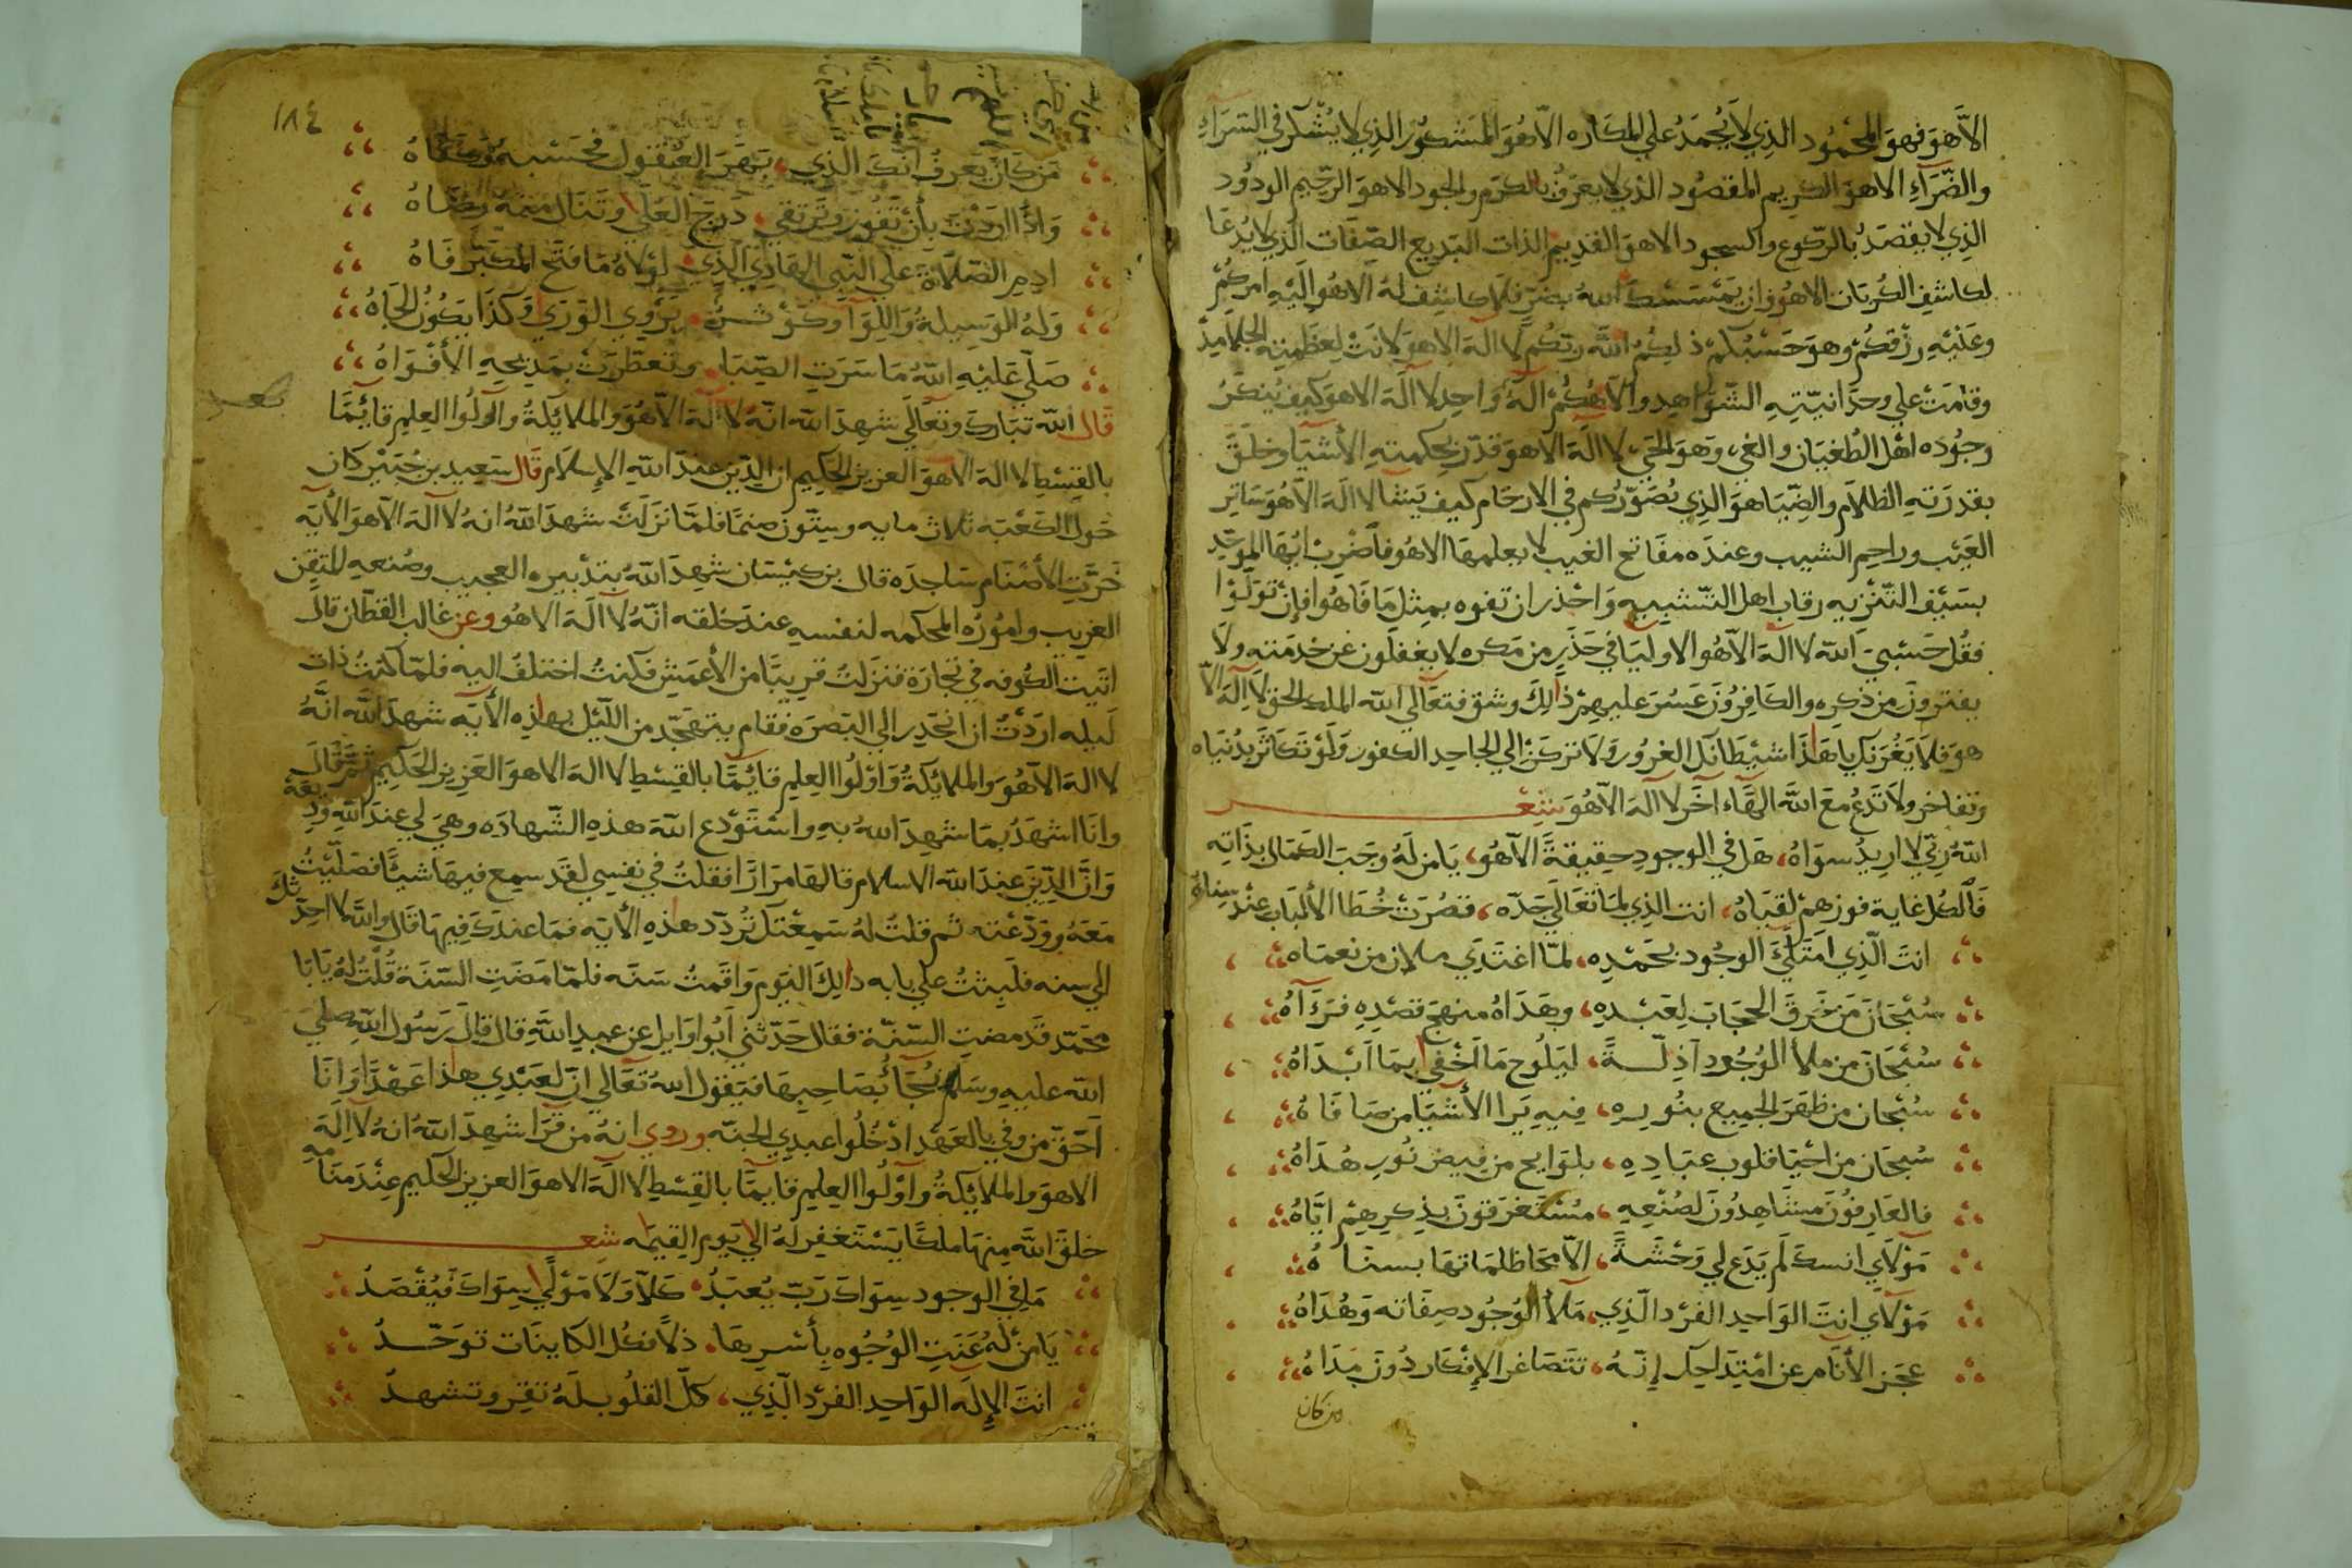 الاَّ هوَ فهوَ المحمُود الذِي لاَ يُحمَدُ علي المكَاره الاّ هُوَ المَشكوُر الذِي لا يُشكر في السّرَآءِ
والضّرَآءِ الا هوَ الكريم المقصُود الذي لا يعرَفُ بالكرَم والجود الا هوَ الرّحيم الودُود
الذِي لا يقصَدُ بالركوع والسجود الا هوَ القديم الذات البَديع الصّفَات الذي لا يُدعَا
لكاشفِ الكُربَات الا هُو وَان يَمسَسْكَ اللهُ بضرٍّ فلاَ كاشِف لهُ الا هُو اليَهِ امركُم
وعَليْهِ رزقكُم وهوَ حَسْبُكمْ ذلِكُم اللهُ ربّكُم لا الهَ الا هوَ لانَتْ لِعظمتِهِ الجلامِيدُ
وقامَتْ علي وحدَانيّتهِ الشّوَاهِد والاهُكُم الهٌ وَاحِد لا الهَ الا هوَ كيف يُنكرُ
وجُوده اهل الطُغيَان والغي وَهوَ الحَي لا الهَ الا هوَ قدّرَ بحكمتهِ الأشيَا وخلقَ
بقدرَتهِ الظلاَم والضِيَا هوَ الذِي يُصَوّرُكم في الارحَام كيف يَشَا لا الهَ الاّ هُوَ سَاتِر
العَيْب وراحِم الشيب وعندَه مفَاتح الغيب لا يعلمهَا الا هُو فاضرِبْ ايّهَا الموحّد
بسَيْف التّنْزيه رقاب اهل التّشبِيه وَاحذر ان تفوه بمِثل مَا فَاهُوا فإنْ توَلّوْا
فقُل حَسْبِيَ الله لا الهَ الاّ هُو الاوليَا في حَذَرٍ من مَكره لا يغفلُون عَن خدمَته ولاَ
يفترونَ من ذكره والكَافِرُونَ عَسُرَ عليهِمْ ذَالِكَ وشق فتعَالي الله الملك الحق لا الهَ الاّ
هوَ فلاَ يَغُرّنكَ يا هَذَا شيْطَانكَ الغرُور وَلاَ تركَنْ الي الجاحِد الكفور وَلَوْ تكَاثرَ بدُنيَاه
وتفَاخر ولاَ تَدعُ معَ اللهِ الهًا آخَر لا الهَ الاّ هُوَ شِعْر
اللهُ ربّي لا ارِيدُ سِوَاهُ، هَل في الوجودِ حقِيقَةً الاّ هُو، يَا من لهُ وجَبَ الكمَال بذَاتِه
فَالكل غاية فوزهِمْ لقيَاهُ، انت الذِي لمَّا تعَالَي جَدّه، قصُرَتْ خُطَا الألبَاب عنْد سِنَاهُ
انتَ الّذِي امتَلَئَ الوجُود بحَمْدِه، لمّا اغتَدَي ملان من نعمَاه
سُبْحَانَ مَن خَرَقَ الحجَابَ لِعَبْدِهِ، وهَدَاهُ منهجَ قصْدِهِ فرَءَآهُ
سُبْحَانَ من ملأ الوُجُود آدِلّةً، ليَلُوح مَا اَخْفي بِمَا اَبْدَاهُ
سُبْحَان من ظهَرَ الجميع بنُورِه، فيهِ يَرَا الأشيَا من صَافَاهُ
سُبحَان من احْيَا قلوب عبَادِهِ، بلوَايح من فيض نُورِ هُدَاهُ
فالعَارِفُونَ مشَاهِدُونَ لصُنْعِهِ، مُسْتَغرَقونَ بذِكرِهِمْ ايّاهُ
مَوْلاَي انسكَ لَم يَدَع لي وَحْشَةً، الاّ محَا ظلمَاتهَا بسنَاهُ
مَوْلاَي انتَ الوَاحِد الفَرْد الّذِي، مَلأ الوُجُود صِفَاته وَهُدَاهُ
عجَز الأنَام عَن امْتِدَاحِكَ إنّهُ، تتَصَاغر الإفْكار دُونَ مَدَاهُ
من كان
١٨٤
مَن كَانَ يَعرفُ انّكَ الّذِي، بَهَرَ العُقول فحَسْبه وكفَاهُ
وَاذَا ارَدْتَ بأَن تَفُوز وَترتقي، دَرَجَ العُلي وتَنَال منهُ رضَاهُ
ادِمِ الصّلاَةَ علي النّبي الهَادِي الّذِي، لوْلاَهُ مَا فتَحَ المُكبّر فَاهُ
وَلهُ الوَسِيلةُ وَاللِوَآ وكَوْثرٌ، يَرْوي الوَرَي وَكذَا يَكُونُ الجَاهُ
صَلّي عَليْهِ اللهُ مَا سَرَتِ الصّبَا، وتعطّرَتْ بمَدِيحِهِ الأفْوَاهُ
قَال الله تبَاركَ وتعَالَي شهِدَ الله انّهُ لا الهَ الاّ هُوَ والملائِكةُ واُولُوا العِلمِ قآئِمًا
بالقِسْطِ لا الهَ الا هوَ العزيز الحكِيم ان الدّينَ عندَ اللهِ الإسلاَم قَال سَعِيد بن جُبَيْر كان
حَولَ الكعْبَه ثلاث مايه وستّونَ صنمًا فلمَّا نزَلَتْ شهدَ اللهُ انهُ لا الهَ الاّ هوَ الأيَه
خَرّتِ الأصْنَام سَاجدَه قال بن كيْسَان شهِدَ اللهُ بتدْبيرِه العجيب وصُنعهِ المتقَن
الغريب وامُورُه المحكمه لنفسهِ عندَ خلقه انّهُ لا الهَ الا هُو وعن غالب القطّان قالَ
اتَيت الكُوفه في تجارَة فنزَلتُ قرِيبًا من الأعمَش فكنتُ اختلفُ اليه فلمّا كنتُ ذات
لَيله ارَدْتُ ان انحَدِر الي البَصرَه فقام يتهجّد من اللّيْل بهاذِه الأيَه شهدَ الله انّهُ
لا الهَ الاّ هُوَ والملائكةُ وَاوْلُوا العِلم قائِمًا بالقِسْطِ لا الهَ الا هوَ العَزيز الحَكِيم ثُمّ قَالَ
وانَا اشهَدُ بمَا شهِدَ اللهُ بهِ واسْتَوْدع اللهَ هذِهِ الشّهادَه وهيَ لي عندَ اللهِ وَدِيعَة
وَانّ الدّينَ عندَ الله الاسلام قالهَا مرَارًا فقلتُ في نفسِي لقَد سمِع فيهَا شيئًا فصَلّيْتُ
مَعَهُ وودّعْته ثم قلتُ لهُ سَمِعْتكَ تُردّد هذِهِ الأيَه فمَا عندَكَ فِيهَا قَالَ واللهِ لا احدّثكَ
الي سنه فلَبِثتُ علي بابه ذالِكَ اليَوم وَاقمتُ سَنَه فلمّا مَضَتِ السّنَة قُلتُ لهُ يَابَا
محَمّد قَد مضتِ السّنَة فقال حَدّثني اَبُوا وَايِل عن عبدِ اللهِ قالَ قالَ رَسُول اللهِ صلي
الله عليهِ وسَلم يُجَآءُ بصَاحِبهَا فيَقول اللهُ تعَالي انّ لعَبْدِي هذا عَهْدًا وَانَا
اَحَقّ من وفي بالعَهْد ادْخُلوا عبدِي الجنّه وروي انهُ من قرَا شهِدَ اللهُ انهُ لا الهَ
الا هوَ والملائكةُ واُوْلُوا العِلم قايمًا بالقِسْطِ لا الهَ الا هوَ العزيز الحكيم عِنْدَ منَامِهِ
خلقَ اللهُ مِنهَا ملكًا يَسْتَغفِر لهُ الي يَوم القِيمَه شِعر
مَا في الوجود سِوَاكَ رَبّ يُعبَدُ، كلاّ وَلاَ مَوْلي سِوَاكَ فيُقْصَدُ
يَا مَن لهُ عَنَتِ الوُجُوه بأَسْرِهَا، ذلاً فكُل الكاينَات توَحّدُ
انتَ الإلَه الوَاحِد الفَرْد الّذِي، كلّ القلُوب لَهُ تقِرّ وتشهدُ